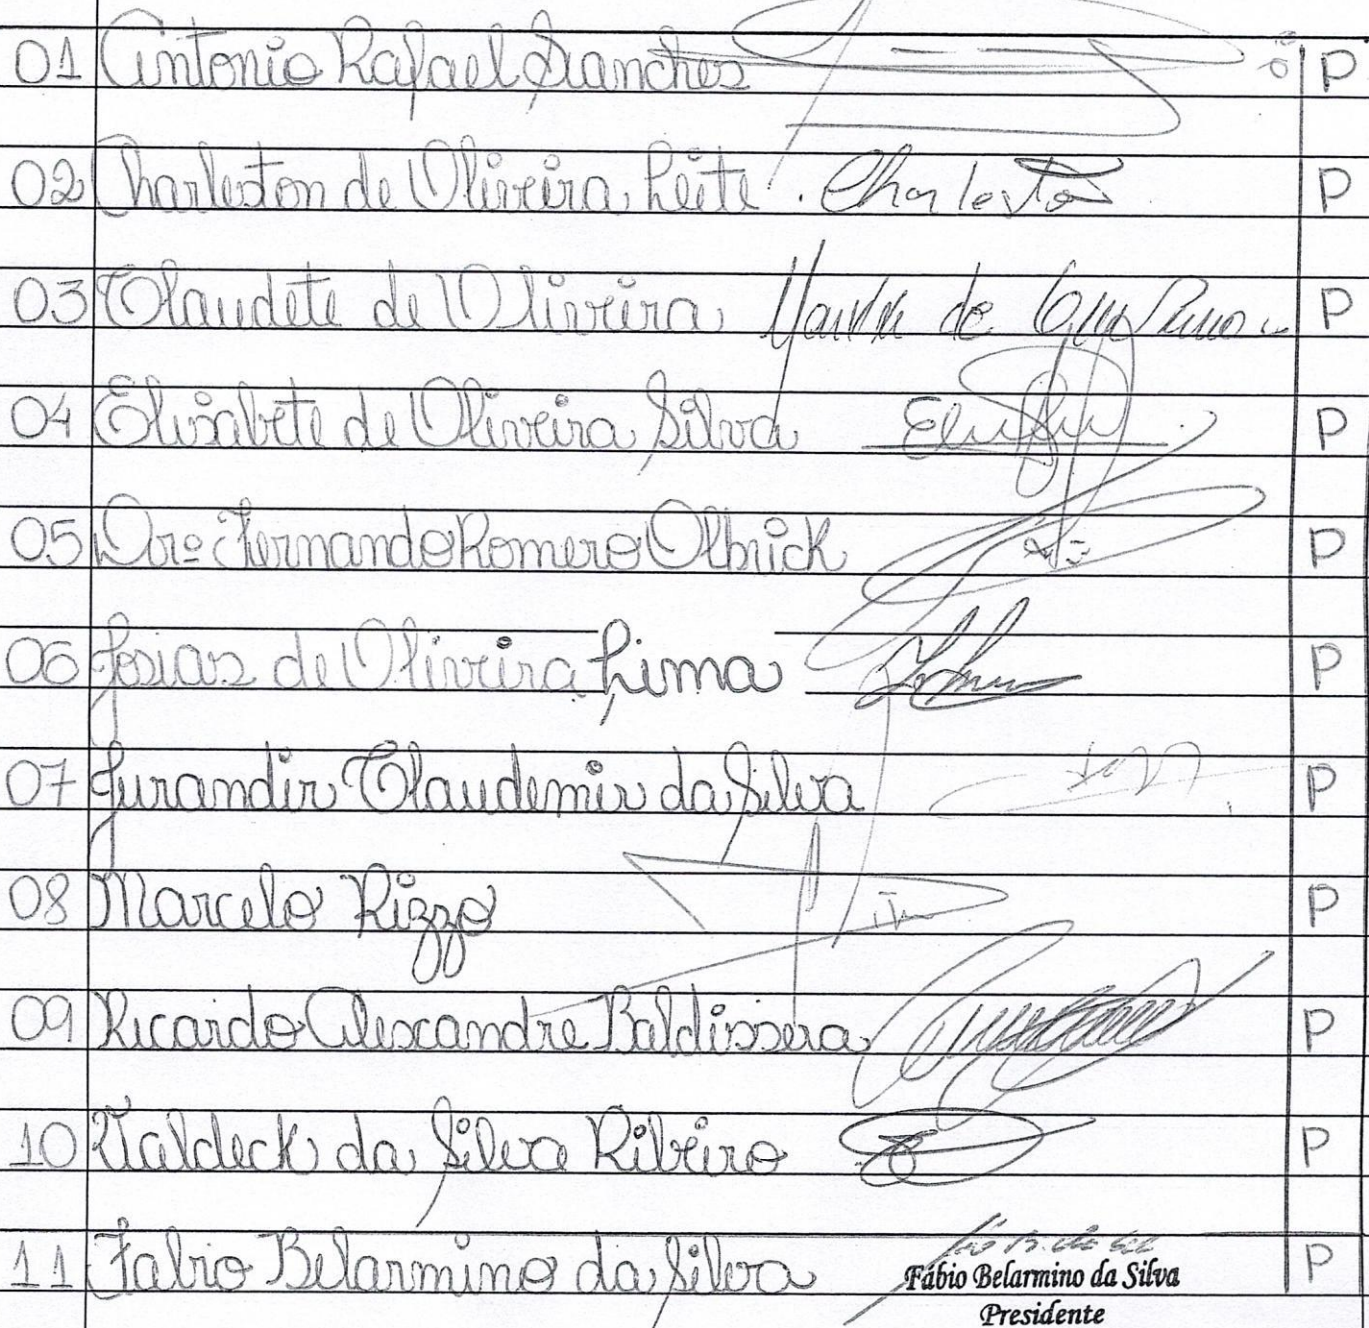 01 Antonio Rafael Sanches P
02 Charleston de Oliveira Leite Charleston P
03 Claudete de Oliveira P
04 Elisabete de Oliveira Silva P
05 Drº Fernando Romero Olbrick P
06 Josias de Oliveira Lima P
07 Jurandir Claudemir da Silva P
08 Marcelo Rizzo P
09 Ricardo Alexandre Baldissera P
10 Valdeck da Silva Ribeiro P
11 Fabio Belarmino da Silva P
Fábio Belarmino da Silva
Presidente